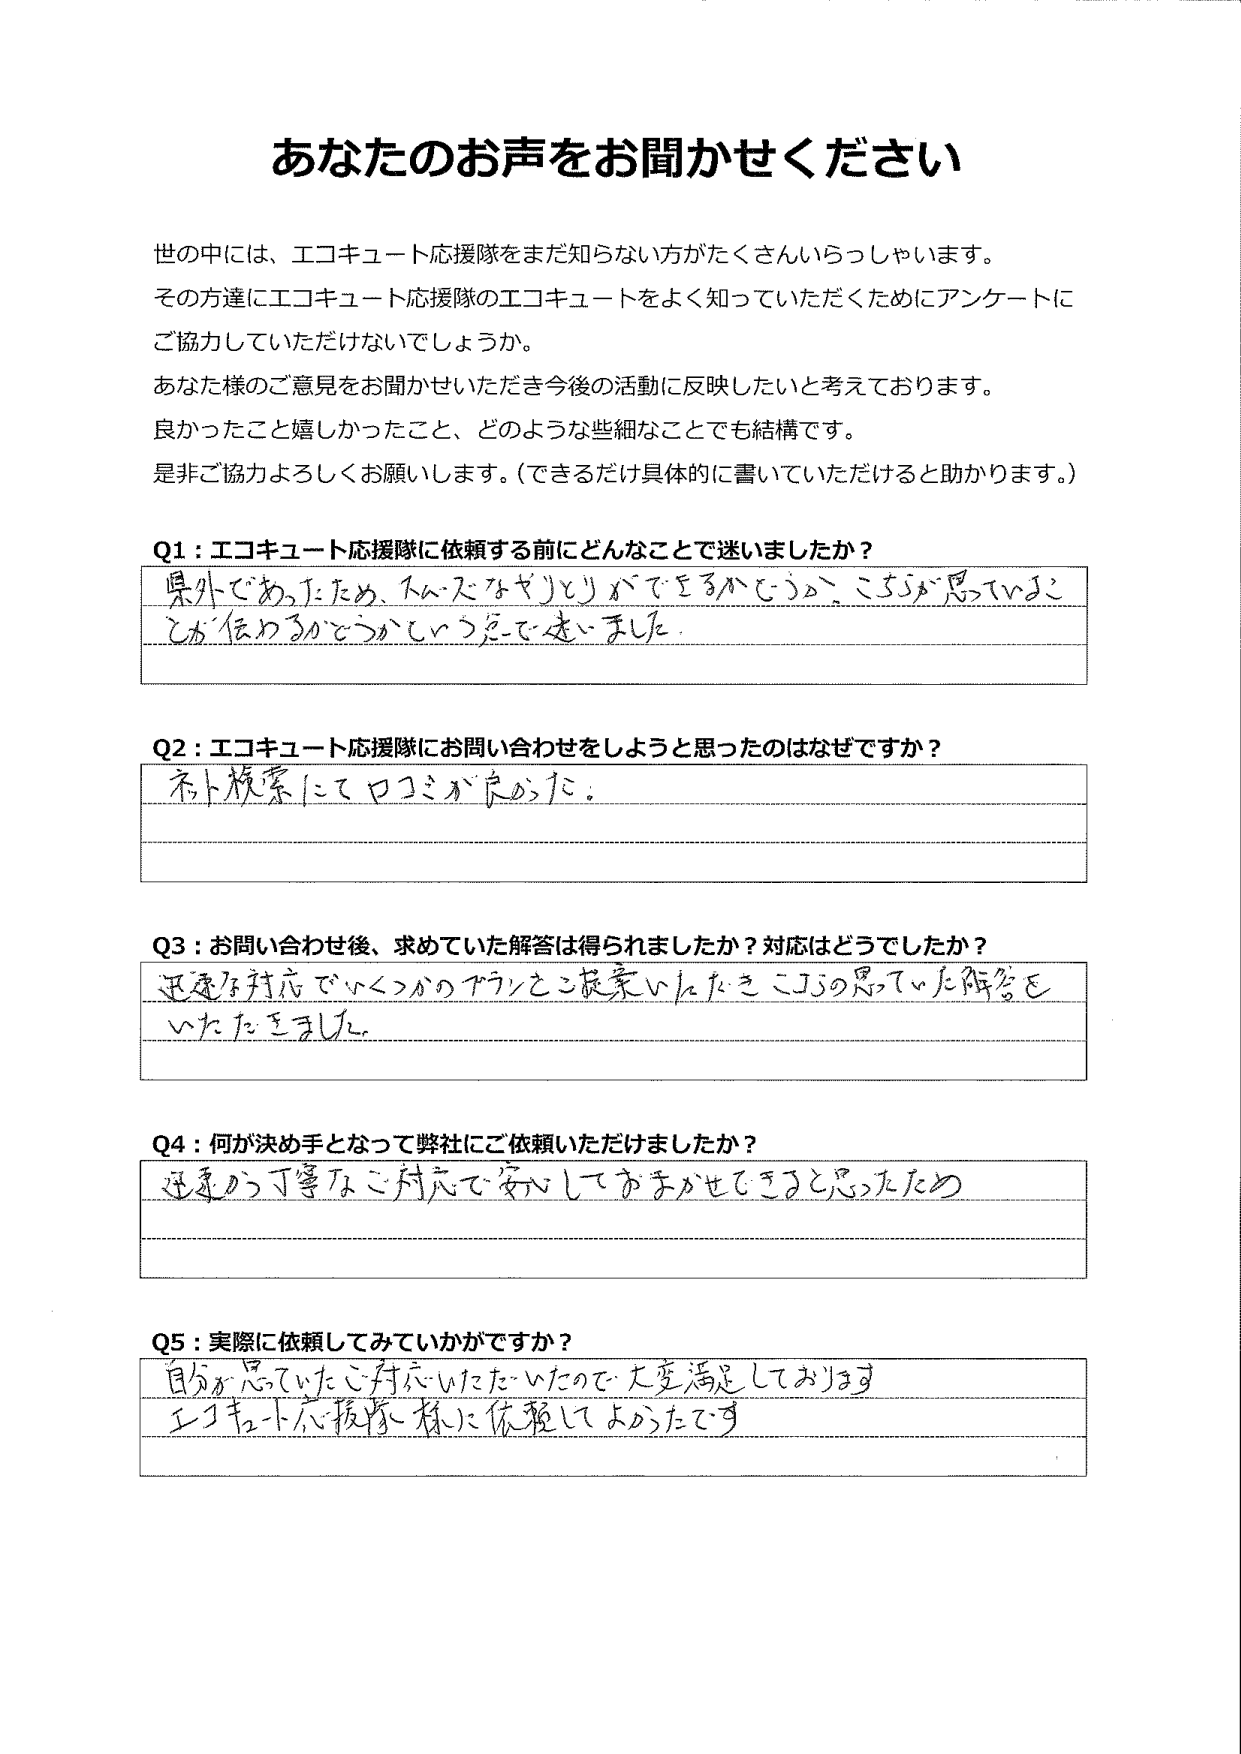 あなたのお声をお聞かせください
世の中には、エコキュート応援隊をまだ知らない方がたくさんいらっしゃいます。
その方達にエコキュート応援隊のエコキュートをよく知っていただくためにアンケートに
ご協力していただけないでしょうか。
あなた様のご意見をお聞かせいただき今後の活動に反映したいと考えております。
良かったこと嬉しかったこと、どのような些細なことでも結構です。
是非ご協力よろしくお願いします。（できるだけ具体的に書いていただけると助かります。）
Q1：エコキュート応援隊に依頼する前にどんなことで迷いましたか？
県外であったため、スムーズなやりとりができるかどうか、こちらが思っているこ
とが伝わるかどうかという点で迷いました.
Q2：エコキュート応援隊にお問い合わせをしようと思ったのはなぜですか？
ネット検索にて口コミが良かった。
Q3：お問い合わせ後、求めていた解答は得られましたか？対応はどうでしたか？
迅速な対応でいくつかのプランをご提案いただきこちらの思っていた解答を
いただきました。
Q4：何が決め手となって弊社にご依頼いただけましたか？
迅速かつ丁寧なご対応で安心しておまかせできると思ったため
Q5：実際に依頼してみていかがですか？
自分が思っていたご対応いただいたので大変満足しております
エコキュート応援隊様に依頼してよかったです